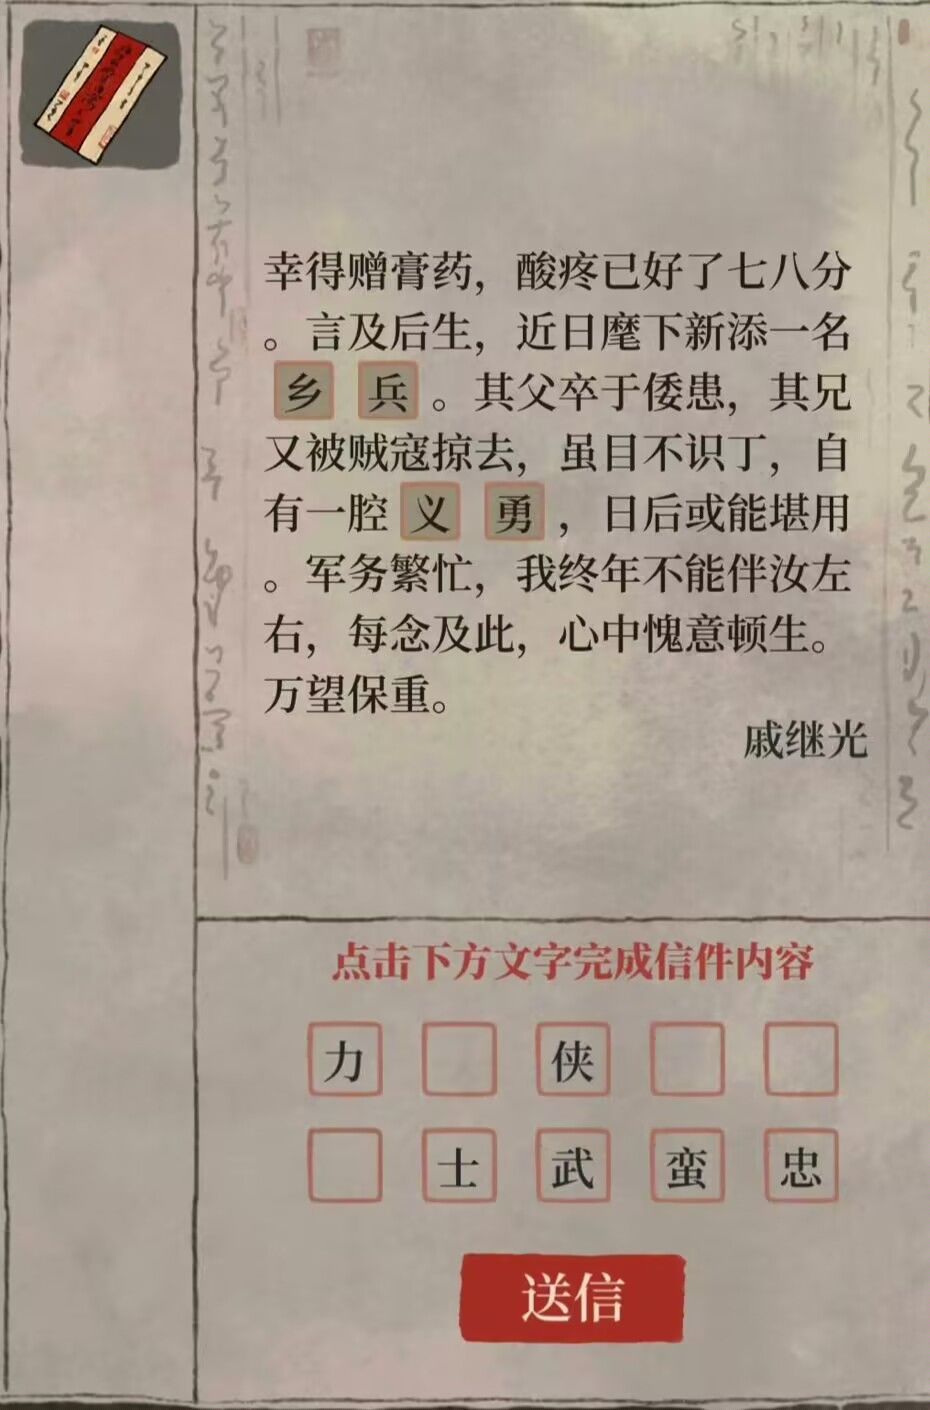 幸得赠膏药，酸疼已好了七八分
。言及后生，近日麾下新添一名
乡兵。其父卒于倭患，其兄
又被贼寇掠去，虽目不识丁，自
有一腔义勇，日后或能堪用
。军务繁忙，我终年不能伴汝左
右，每念及此，心中愧意顿生。
万望保重。
戚继光
点击下方文字完成信件内容
力 侠
士 武 蛮 忠
送信